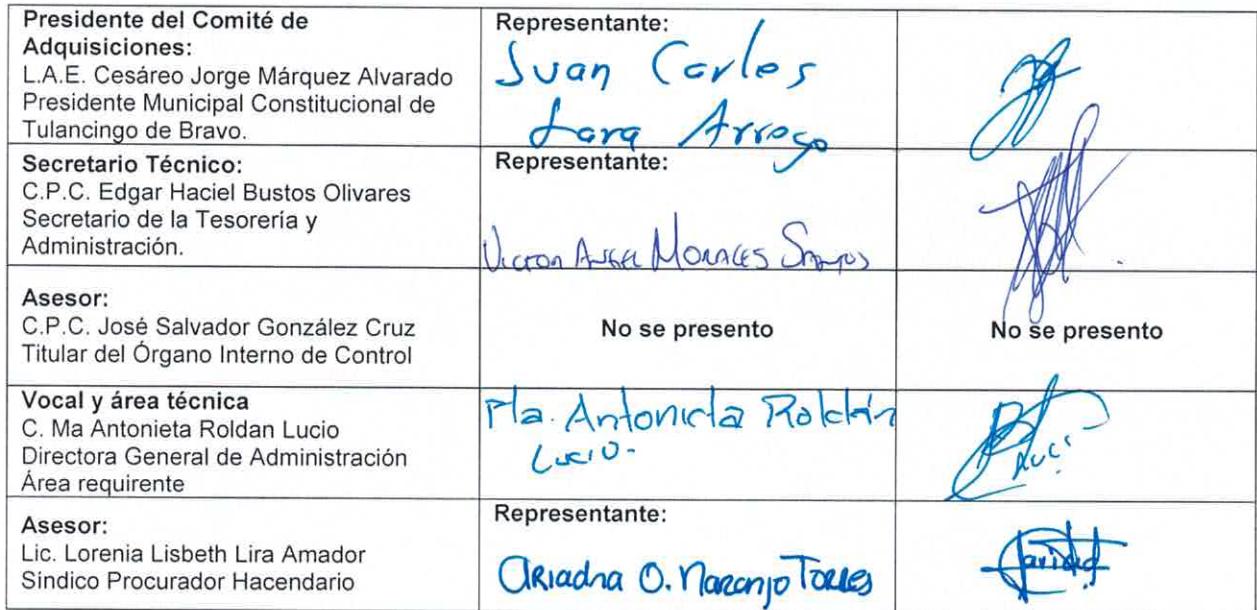 Presidente del Comité de
Adquisiciones:
L.A.E. Cesáreo Jorge Márquez Alvarado
Presidente Municipal Constitucional de
Tulancingo de Bravo.
Representante:
Juan Carlos
Lara Arroyo
Secretario Técnico:
C.P.C. Edgar Haciel Bustos Olivares
Secretario de la Tesorería y
Administración.
Representante:
Victor Angel Morales Santos
Asesor:
C.P.C. José Salvador González Cruz
Titular del Órgano Interno de Control
No se presento
No se presento
Vocal y área técnica
C. Ma Antonieta Roldan Lucio
Directora General de Administración
Área requirente
Ma. Antonieta Roldán
Lucio.
Asesor:
Lic. Lorenia Lisbeth Lira Amador
Síndico Procurador Hacendario
Representante:
Ariadna O. Naranjo Torres